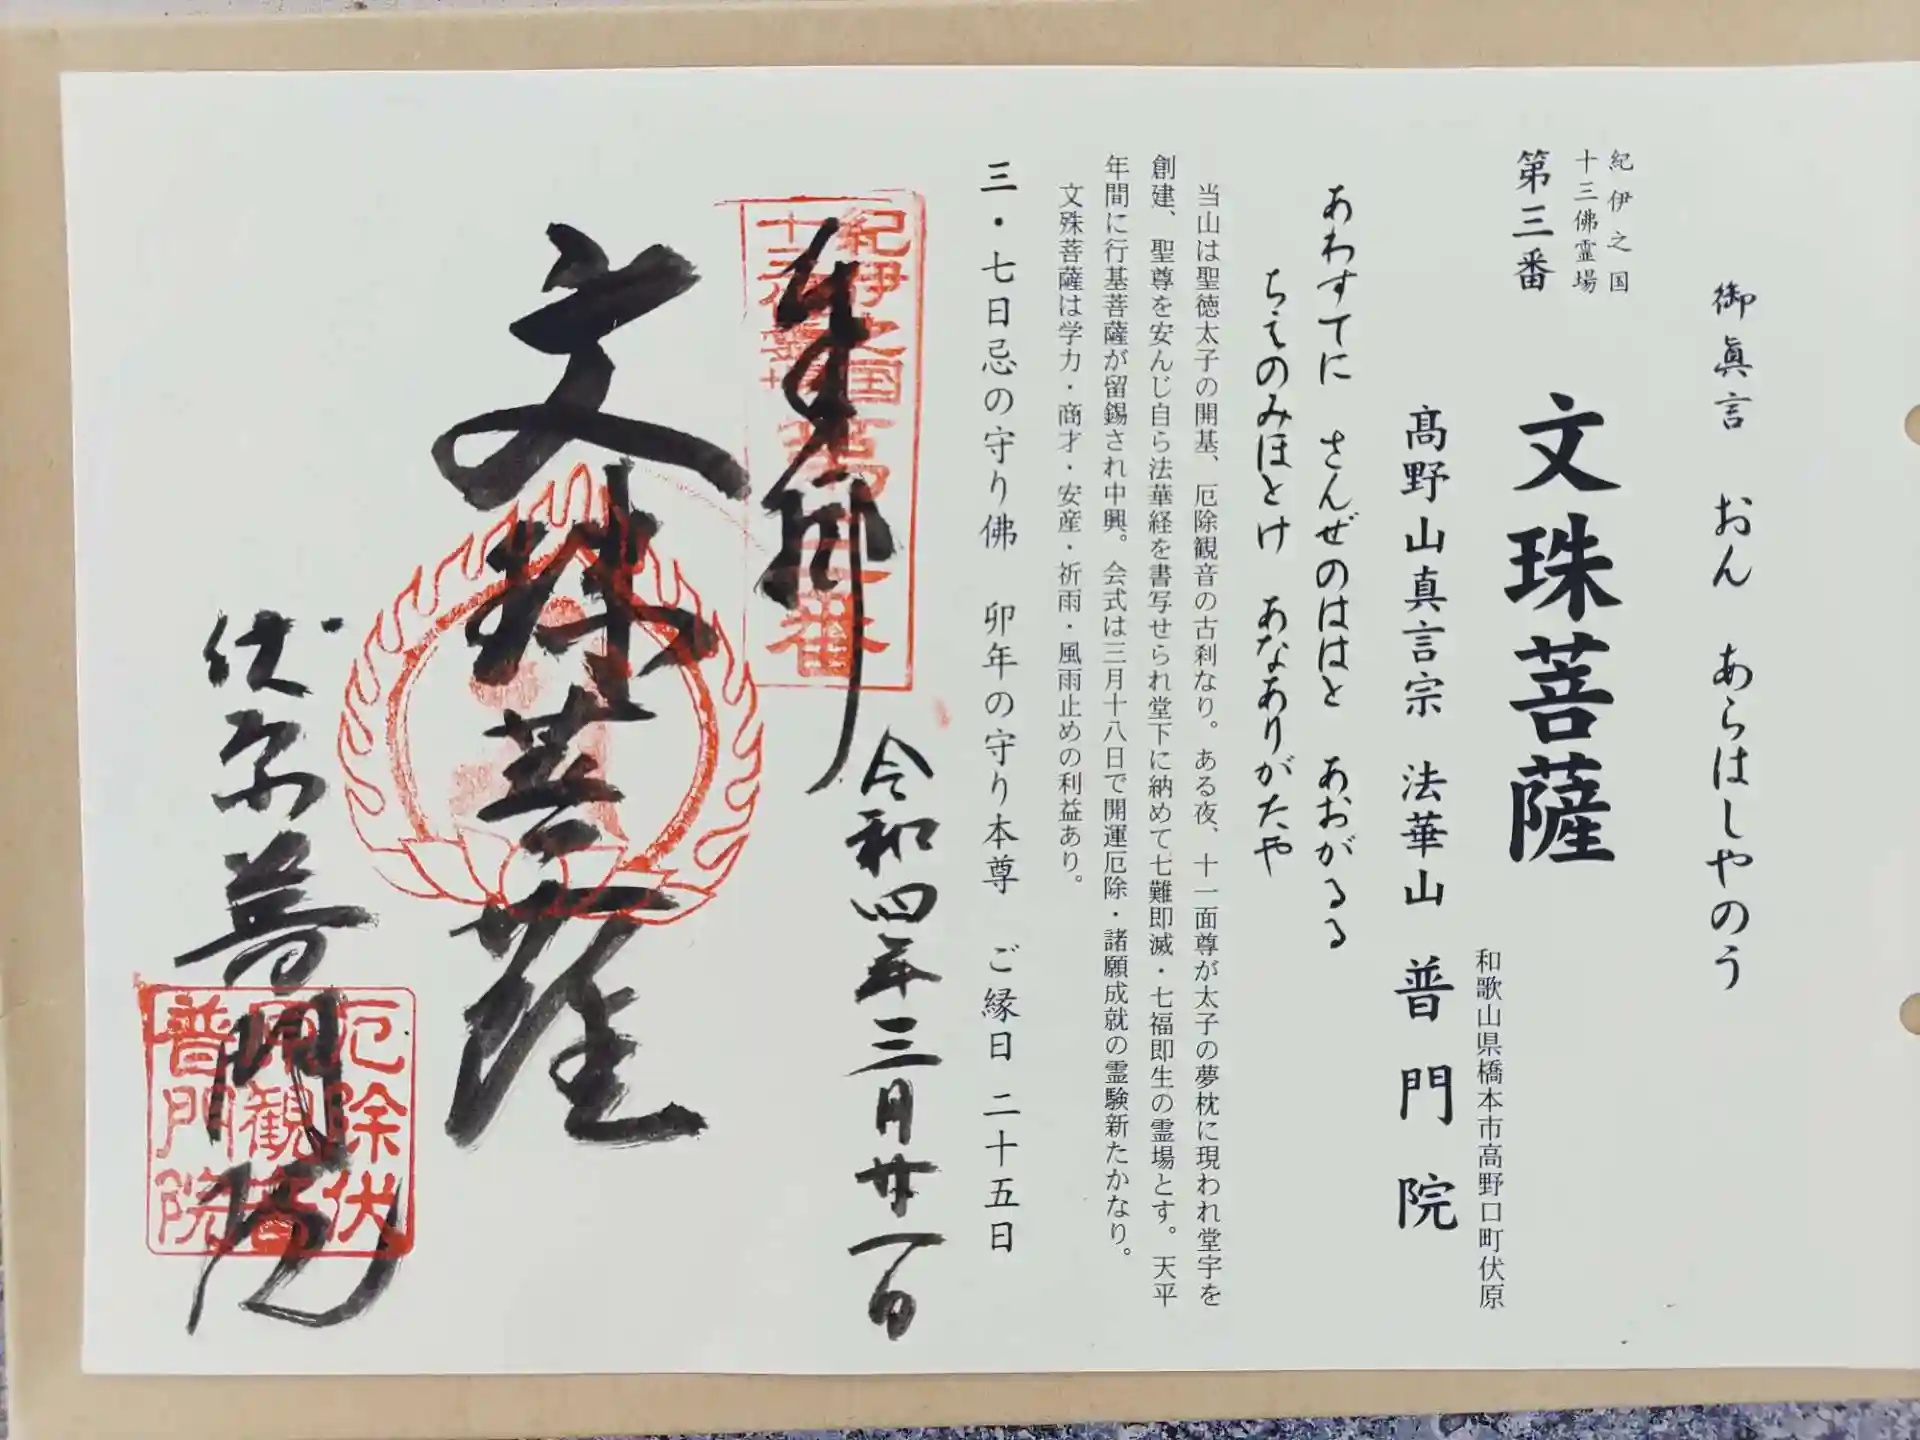 御眞言　おん　あらはしやのう
紀伊之国
十三佛霊場
第三番　文珠菩薩
和歌山県橋本市高野口町伏原
髙野山真言宗　法華山　普門院
あわすてに　さんぜのははと　あおがるる
ちえのみほとけ　あなありがたや
当山は聖徳太子の開基、厄除観音の古刹なり。ある夜、十一面尊が太子の夢枕に現われ堂宇を
創建、聖尊を安んじ自ら法華経を書写せられ堂下に納めて七難即滅・七福即生の霊場とす。天平
年間に行基菩薩が留錫され中興。会式は三月十八日で開運厄除・諸願成就の霊験新たかなり。
文殊菩薩は学力・商才・安産・祈雨・風雨止めの利益あり。
三・七日忌の守り佛　卯年の守り本尊　ご縁日　二十五日
奉拝
令和四年三月廿一日
紀伊之国
十三佛霊場
第三番
文珠菩薩
伏原普門院
厄除伏
原観音
普門院